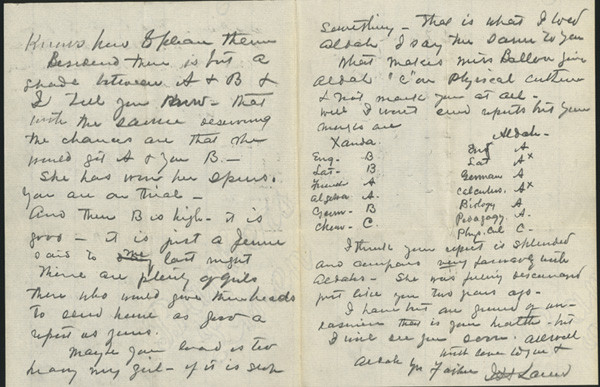 Knows how to please them
Besides there is but a
shade between A & B &
I tell you now - that
with the same deserving
the chances are that she
would get A & you B. -
She has won her spurs.
You are on trial -
And then B is high - it is
good - it is just a
said to me last night
There are plenty of girls
there who would give their heads
to send home as good a
report as yours.
Maybe your load is too
heavy my girl - if it is stop
something - That is what I told
Aldah I say the same to you
What makes Miss Ballou give
Aldah "C" on Physical culture
& not mark you at all -
Well I won't send reports but your
marks are
Xanda.
Eng - B
Lat - B
French A
Algebra A
Germ - B
Chem - C.
Aldah -
Eng A
Lat A x
German A
Calculus. A x
Biology A
Pedagogy A.
Physical C -
I think your report is splendid
and compares very favorably with
Aldahs - She was feeling discouraged
just like you two years ago -
I have but one ground of un-
easiness that is your health - but
I will see you soon.
With love to you &
Aldah Yr Father